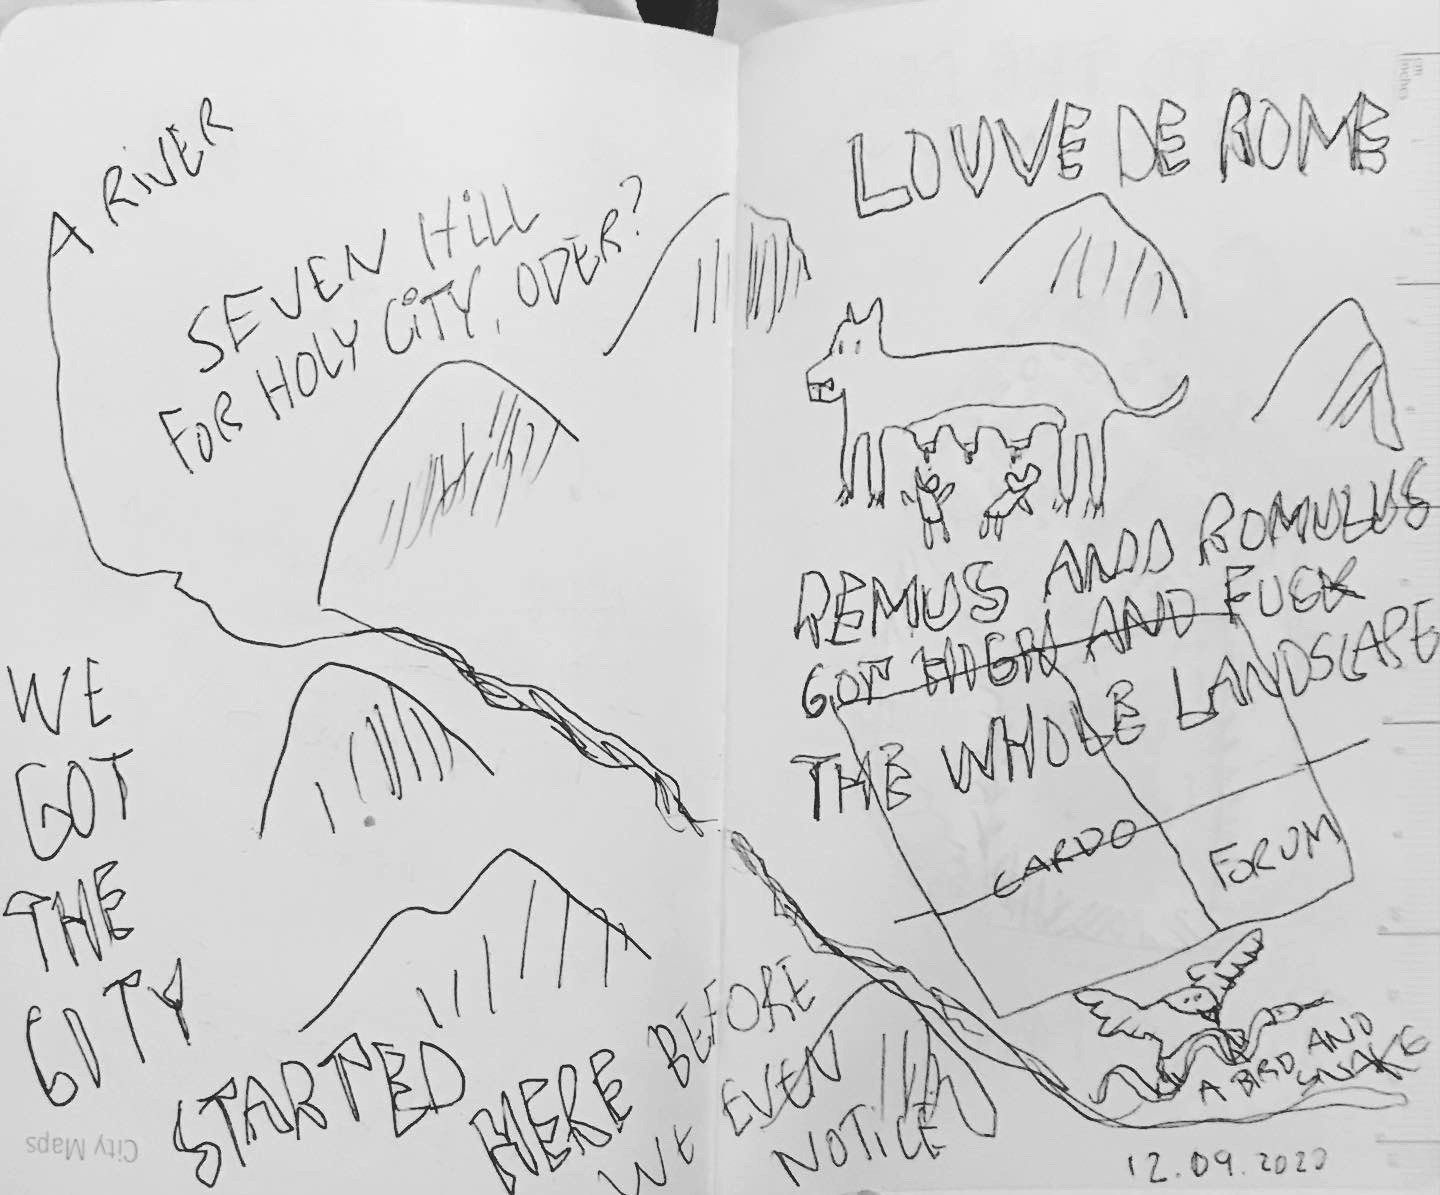 A RIVER
SEVEN HILL
FOR HOLY CITY, ODER?
WE
GOT
THE
CITY
STARTED
HERE BEFORE
WE EVEN
NOTICE
City Maps
LOUVE DE ROME
REMUS AND ROMULUS
GOT HIGH AND FUCK
THE WHOLE LANDSCAPE
CARDO
FORUM
A BIRD AND
SNAKE
12.09.2020
cm
inches